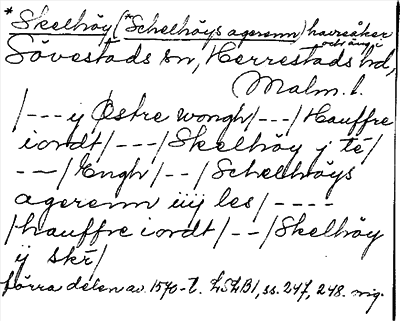 *Skelhöy (*Schelhöys agerenn) havreåker
och äng i
Sövestads sn, Herrestads hd,
Malm. l.
/--- ij Østre wongh/---/Hauffre
iordt/---/Skelhöy j té/
---/Engh/--/Schelhöys
agerenn iiij les/----
/hauffre iordt/--/Skelhöy
ij skr/
förra delen av 1570-t. LSLB1, ss. 247, 248. orig.